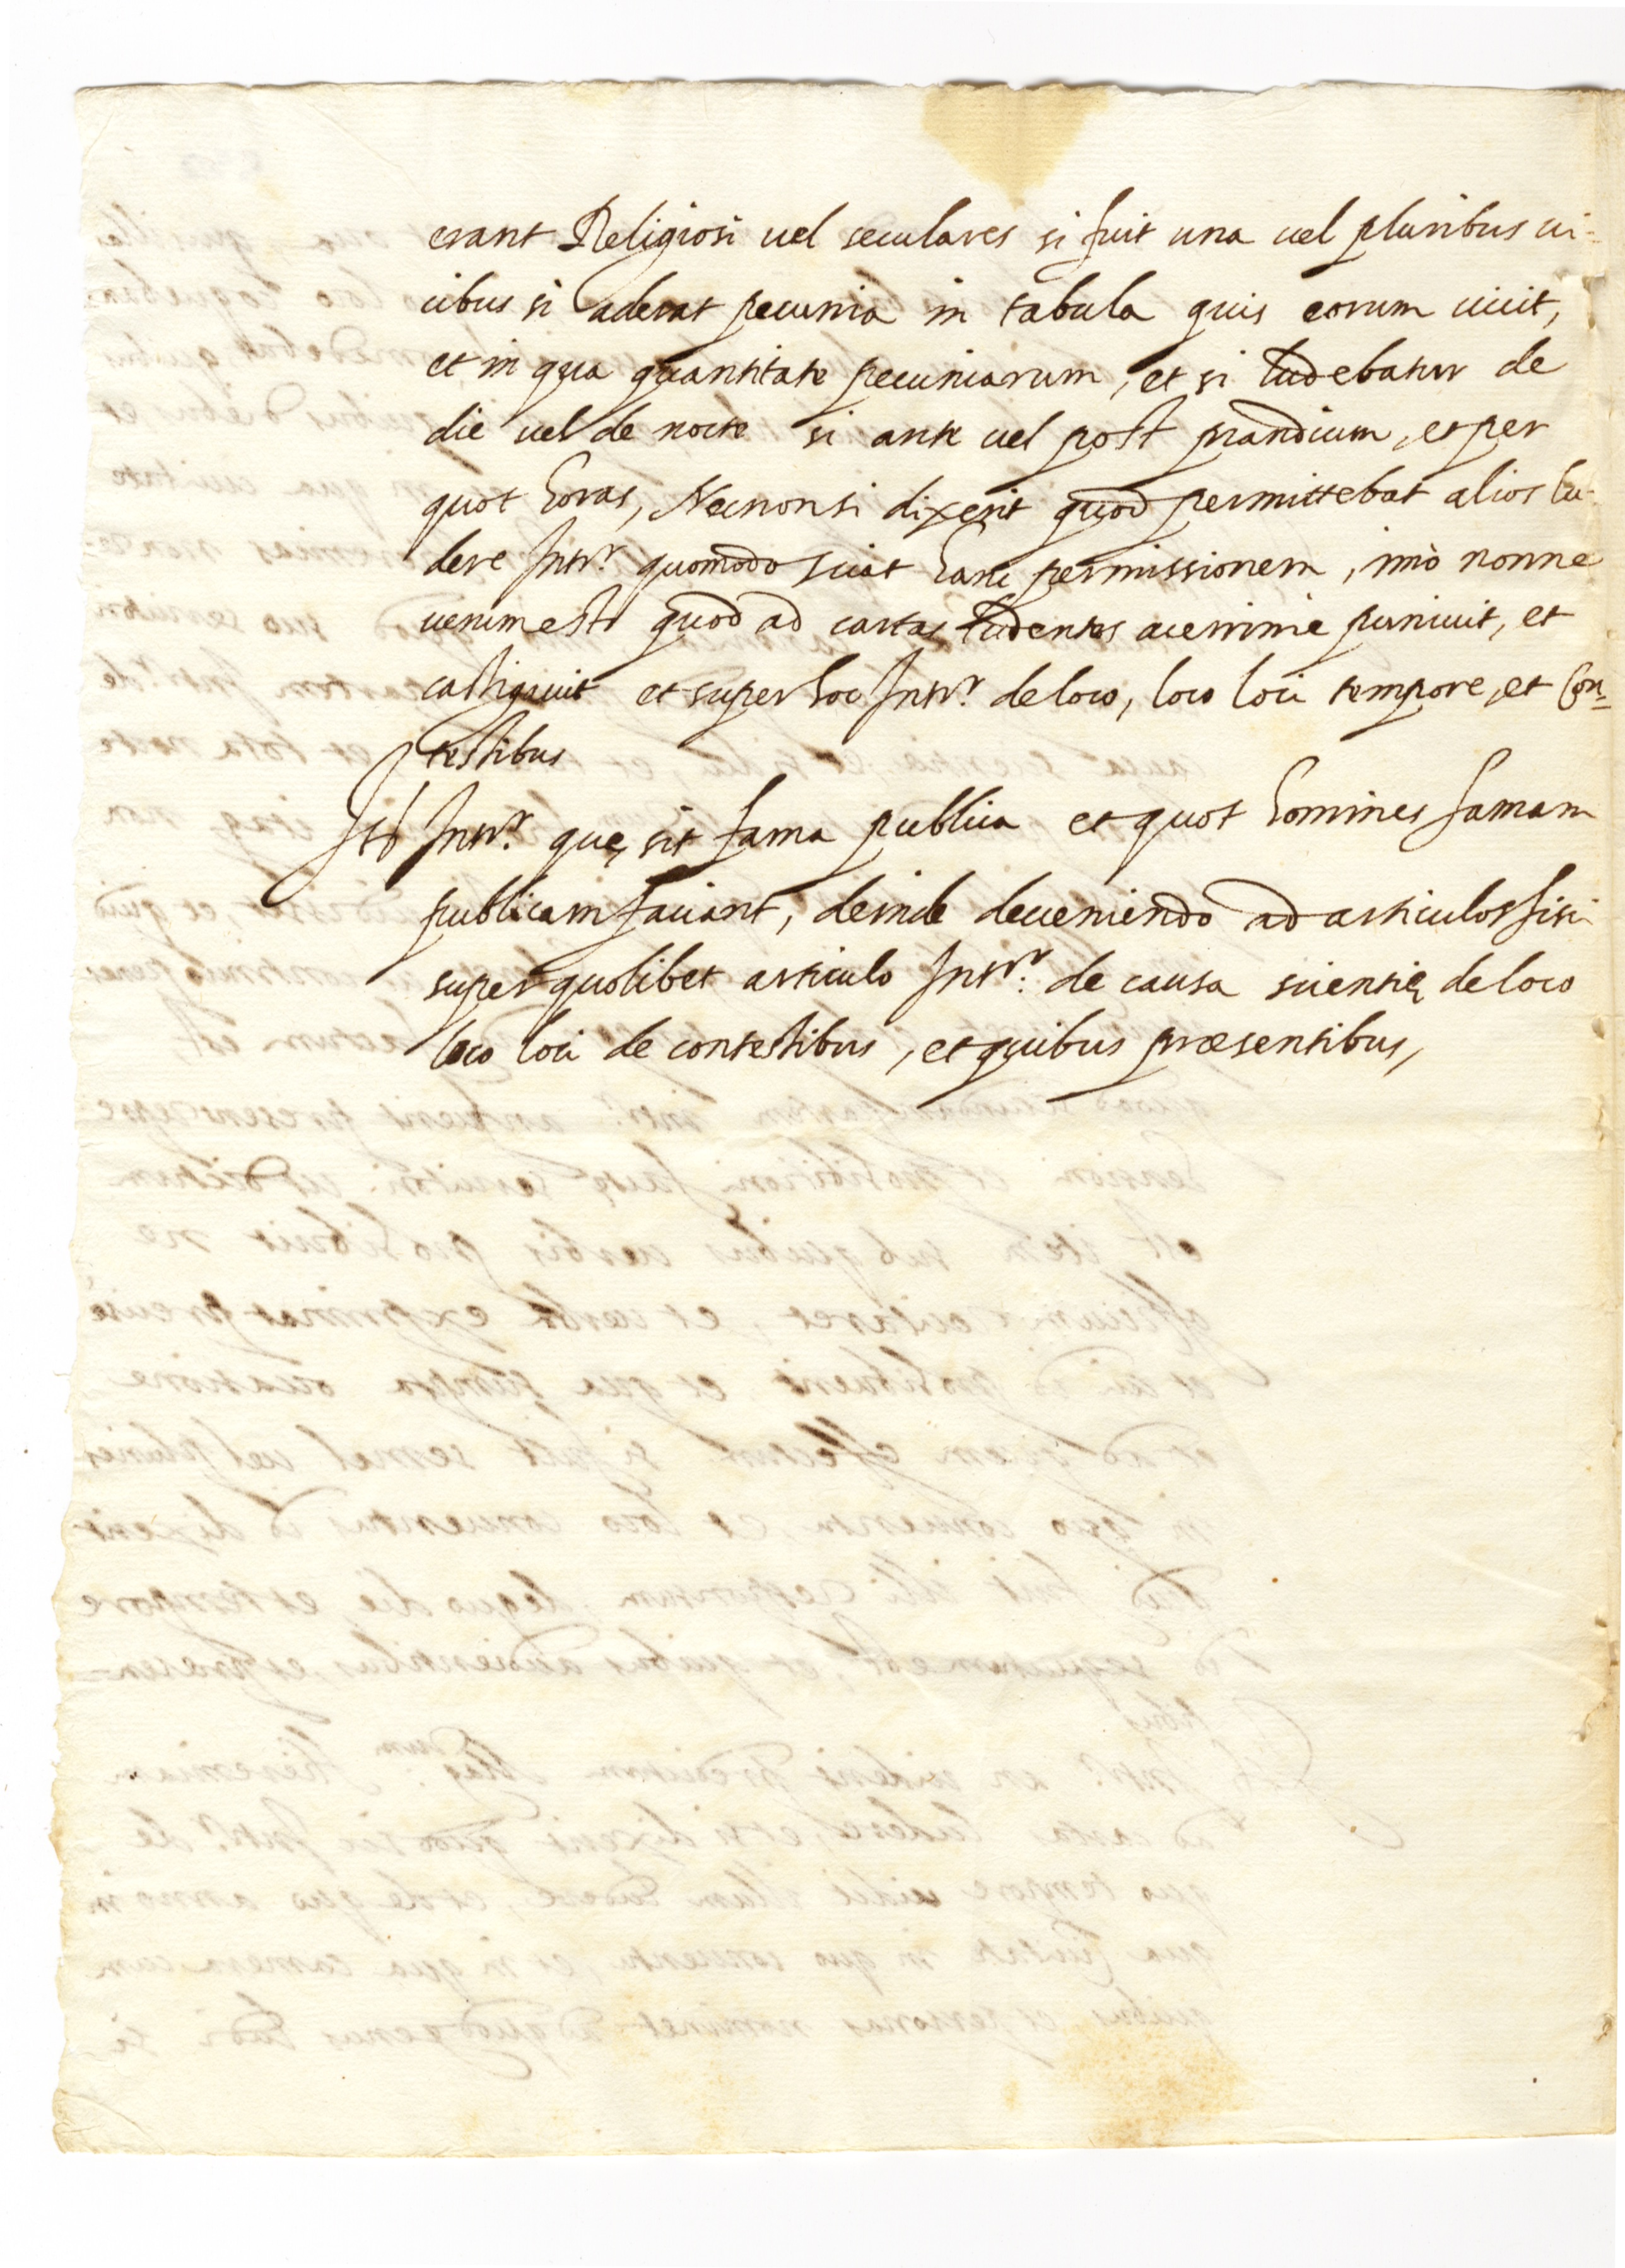 erant Religiosi uel seculares si fuit una uel pluribus ui-
cibus si aderat pecunia in tabula quis eorum uicit,
et in qua quantitate pecuniarum, et si ludebatur de
die uel de nocte si ante uel post prandium, et per
quot horas, Necnon si dixerit quod permittebat alios lu-
dere Intr.r quomodo sciat hanc permissionem, imò nonne
uerum est quod ad cartas ludentes acerrime puniuit, et
castigauit et super hoc Intr.r de loco, loco loci tempore, et Con-
testibus
It Intr.r quę sit fama publica et quot homines famam
publicam faciant, deinde deueniendo ad articulos fisci
super quolibet articulo Intr.r de causa scientię de loco
loco loci de contestibus, et quibus præsentibus,